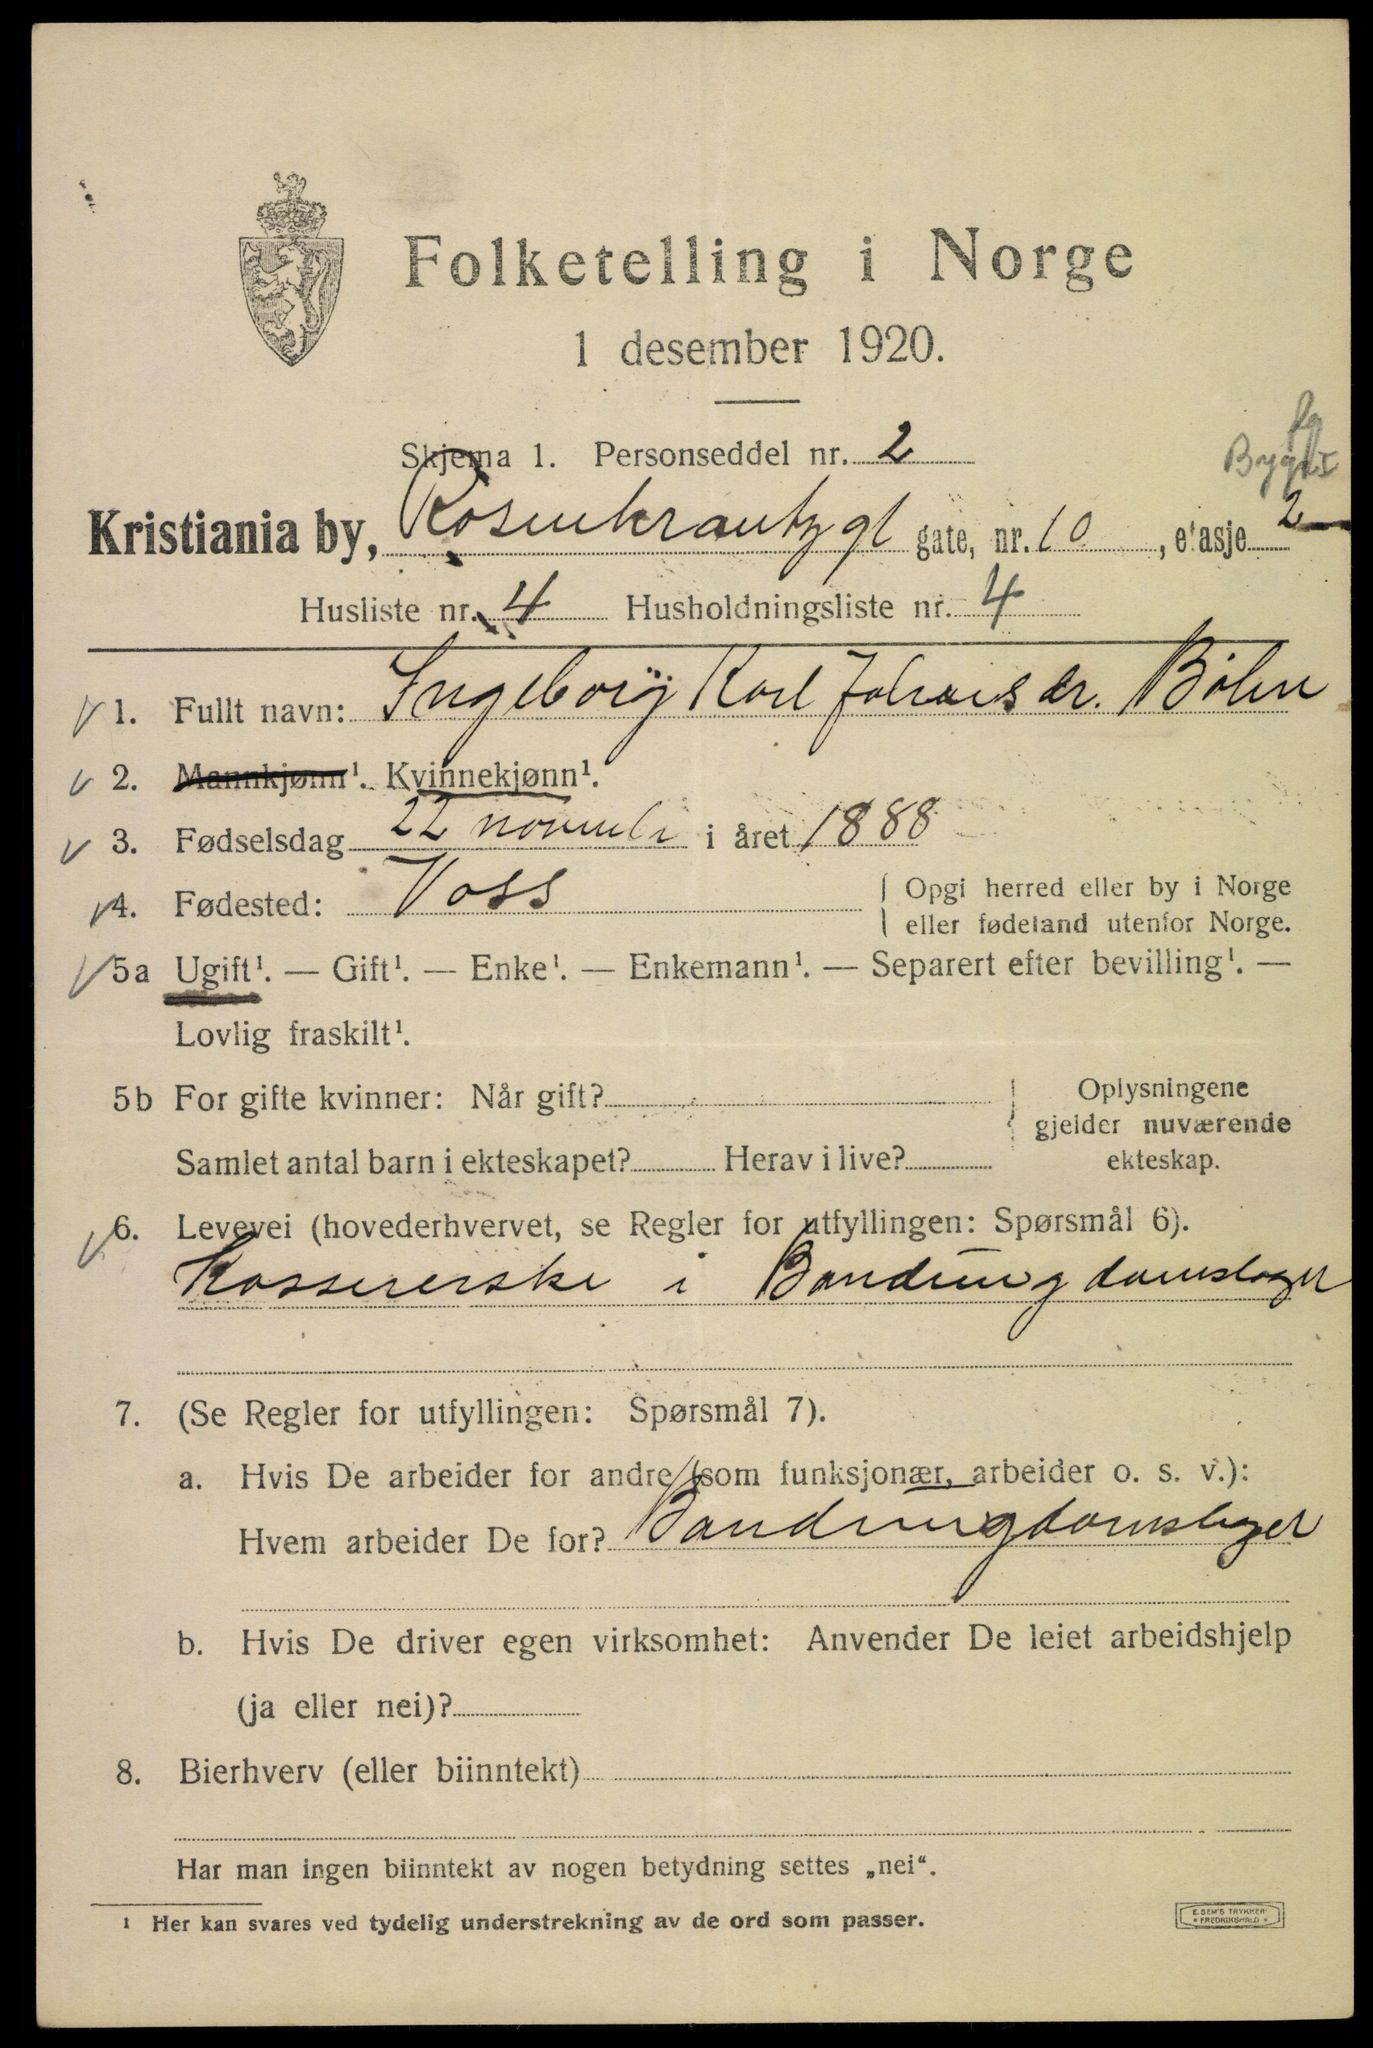 Folketelling i Norge
1 desember 1920.
Skjema 1. Personseddel nr. 2
Kristiania by, Rosenkrantzgt gate, nr. 10, etasje 2
Husliste nr. 4 Husholdningsliste nr. 4
1. Fullt navn: Ingeborg Karl Johans dr. Bølen
2. Mannkjønn¹. Kvinnekjønn¹.
3. Fødselsdag 22 november i året 1888
4. Fødested: Voss
{ Opgi herred eller by i Norge
eller fødeland utenfor Norge.
5a Ugift¹. — Gift¹. — Enke¹. — Enkemann¹. — Separert efter bevilling¹. —
Lovlig fraskilt¹.
5b For gifte kvinner: Når gift?
Samlet antal barn i ekteskapet? Herav i live?
} Oplysningene
gjelder nuværende
ekteskap.
6. Levevei (hovederhvervet, se Regler for utfyllingen: Spørsmål 6).
Kassererske i
7. (Se Regler for utfyllingen: Spørsmål 7).
a. Hvis De arbeider for andre (som funksjonær, arbeider o. s. v.):
Hvem arbeider De for?
b. Hvis De driver egen virksomhet: Anvender De leiet arbeidshjelp
(ja eller nei)?
8. Bierhverv (eller biinntekt)
Har man ingen biinntekt av nogen betydning settes „nei“.
¹ Her kan svares ved tydelig understrekning av de ord som passer.
E. SEM'S TRYKKERI
* FREDRIKSHALD *